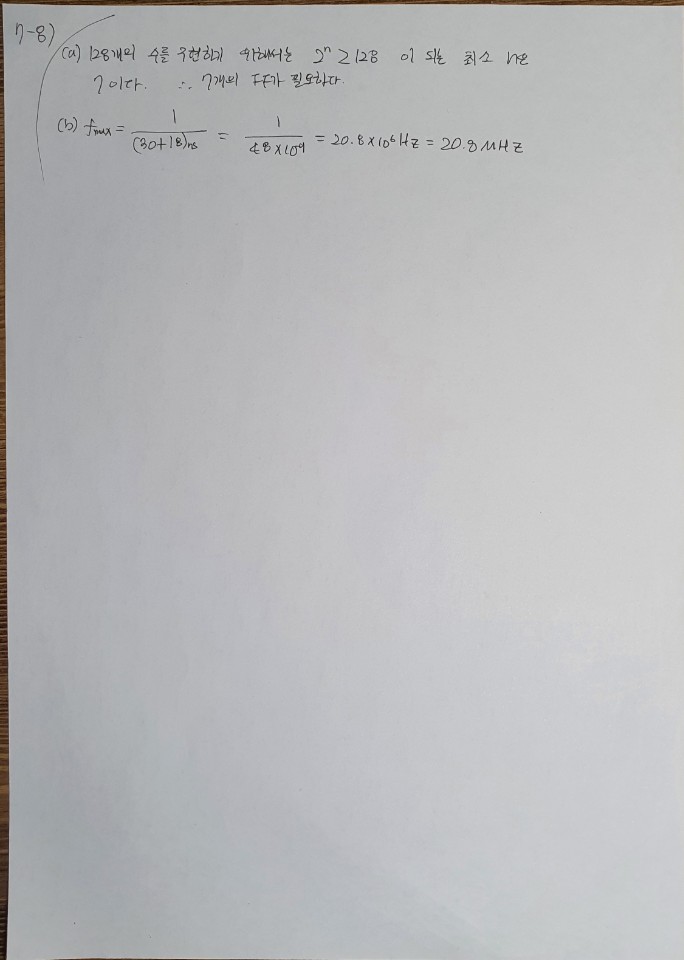 7-8)
(a) 128개의 수를 구현하기 위해서는 2ⁿ ≥ 128 이 되는 최소 n은
7 이다. ∴ 7개의 FF가 필요하다.
(b) fmax = 1/(30+18)ns = 1/(48×10⁻⁹) = 20.8×10⁶Hz = 20.8MHz